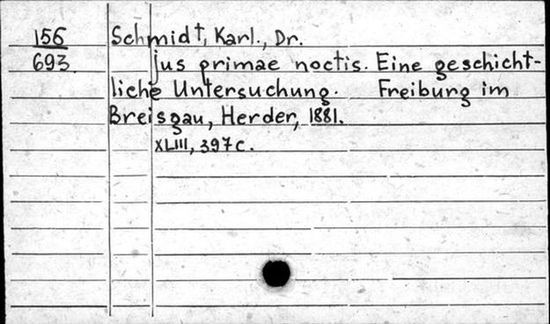 156 Schmidt, Karl., Dr.
693 jus primae noctis. Eine geschicht-
liche Untersuchung. Freiburg im
Breisgau, Herder, 1881.
XLIII, 397 c.